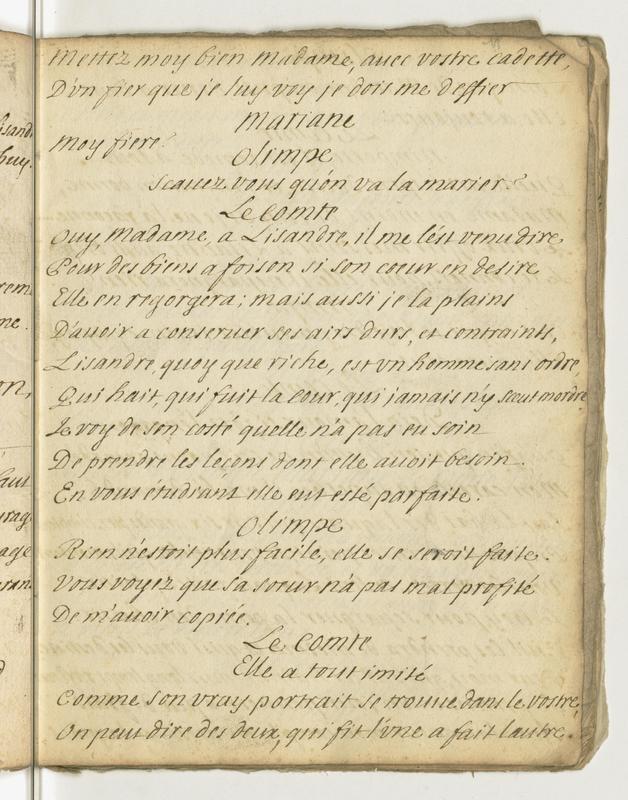 Mettez moy bien Madame, avec vostre cadette,
D'vn fier que je luy voy je dois me deffier
Mariane
Moy fiere?
Olimpe
Scauez vous qu'on va la marier?
Le Comte
Ouy, Madame, a Lisandre, il me l'est venu dire
Pour des biens a foison si son coeur en desire
Elle en regorgera; mais aussi je la plains
D'auoir a conseruer ses airs durs, et contraints,
Lisandre, quoy que riche, est vn homme sans ordre,
Qui hait, qui fuit la Cour, qui jamais n'y sceut mordre
Je voy de son costé quelle n'a pas eu soin
De prendre les lecons dont elle auoit besoin.
En vous étudiant elle eut esté parfaite.
Olimpe
Rien n'estoit plus facile, elle se seroit faite.
Vous voyez que sa soeur n'a pas mal profité
De m'auoir copiée.
Le Comte
Elle a tout imité
Comme son vray portrait se trouue dans le vostre,
On peut dire des deux, qui fit l'vne a fait l'autre.